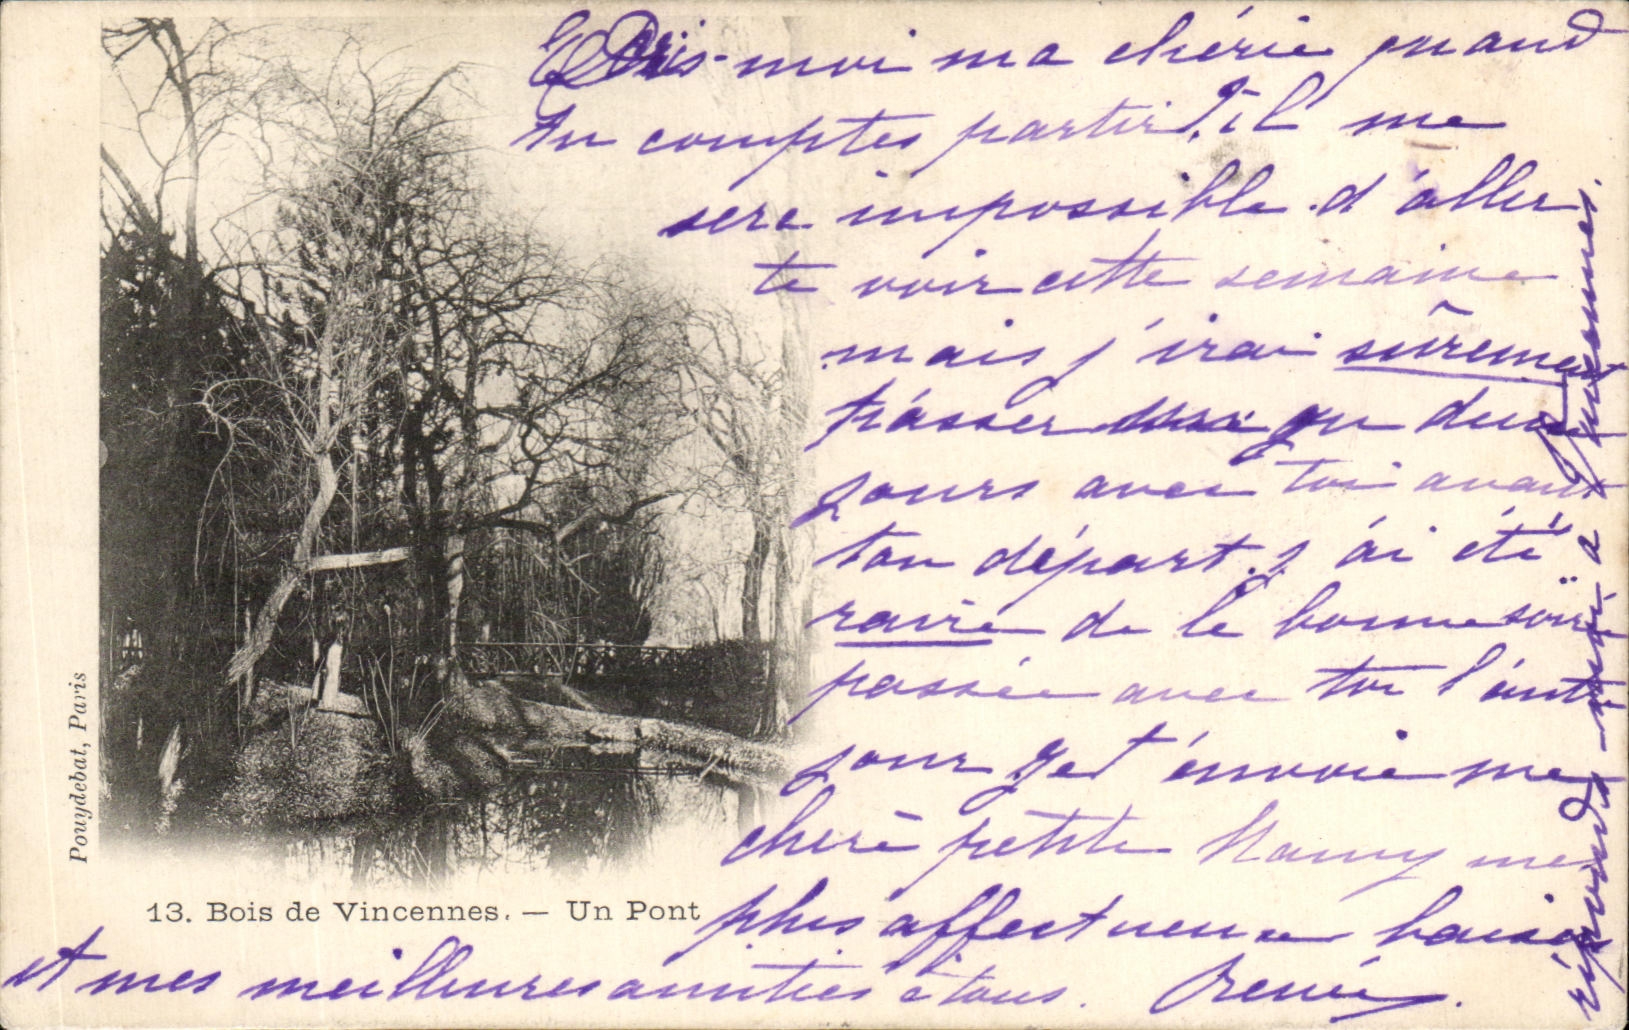 Dis-moi ma chérie quand
tu comptes partir, il me
sera impossible d'aller
te voir cette semaine
mais j'irai sûrement
passer qu deux
jours avec toi avant
ton départ. j'ai été
ravie de la bonne soirée
passée avec toi l'autre
jour Je t'envoie ma
chère petite Nanny mes
plus affectueux baisers
et mes meilleures amitiés à tous. Renée.
réponds-moi à
Pouydebat, Paris
13. Bois de Vincennes. — Un Pont